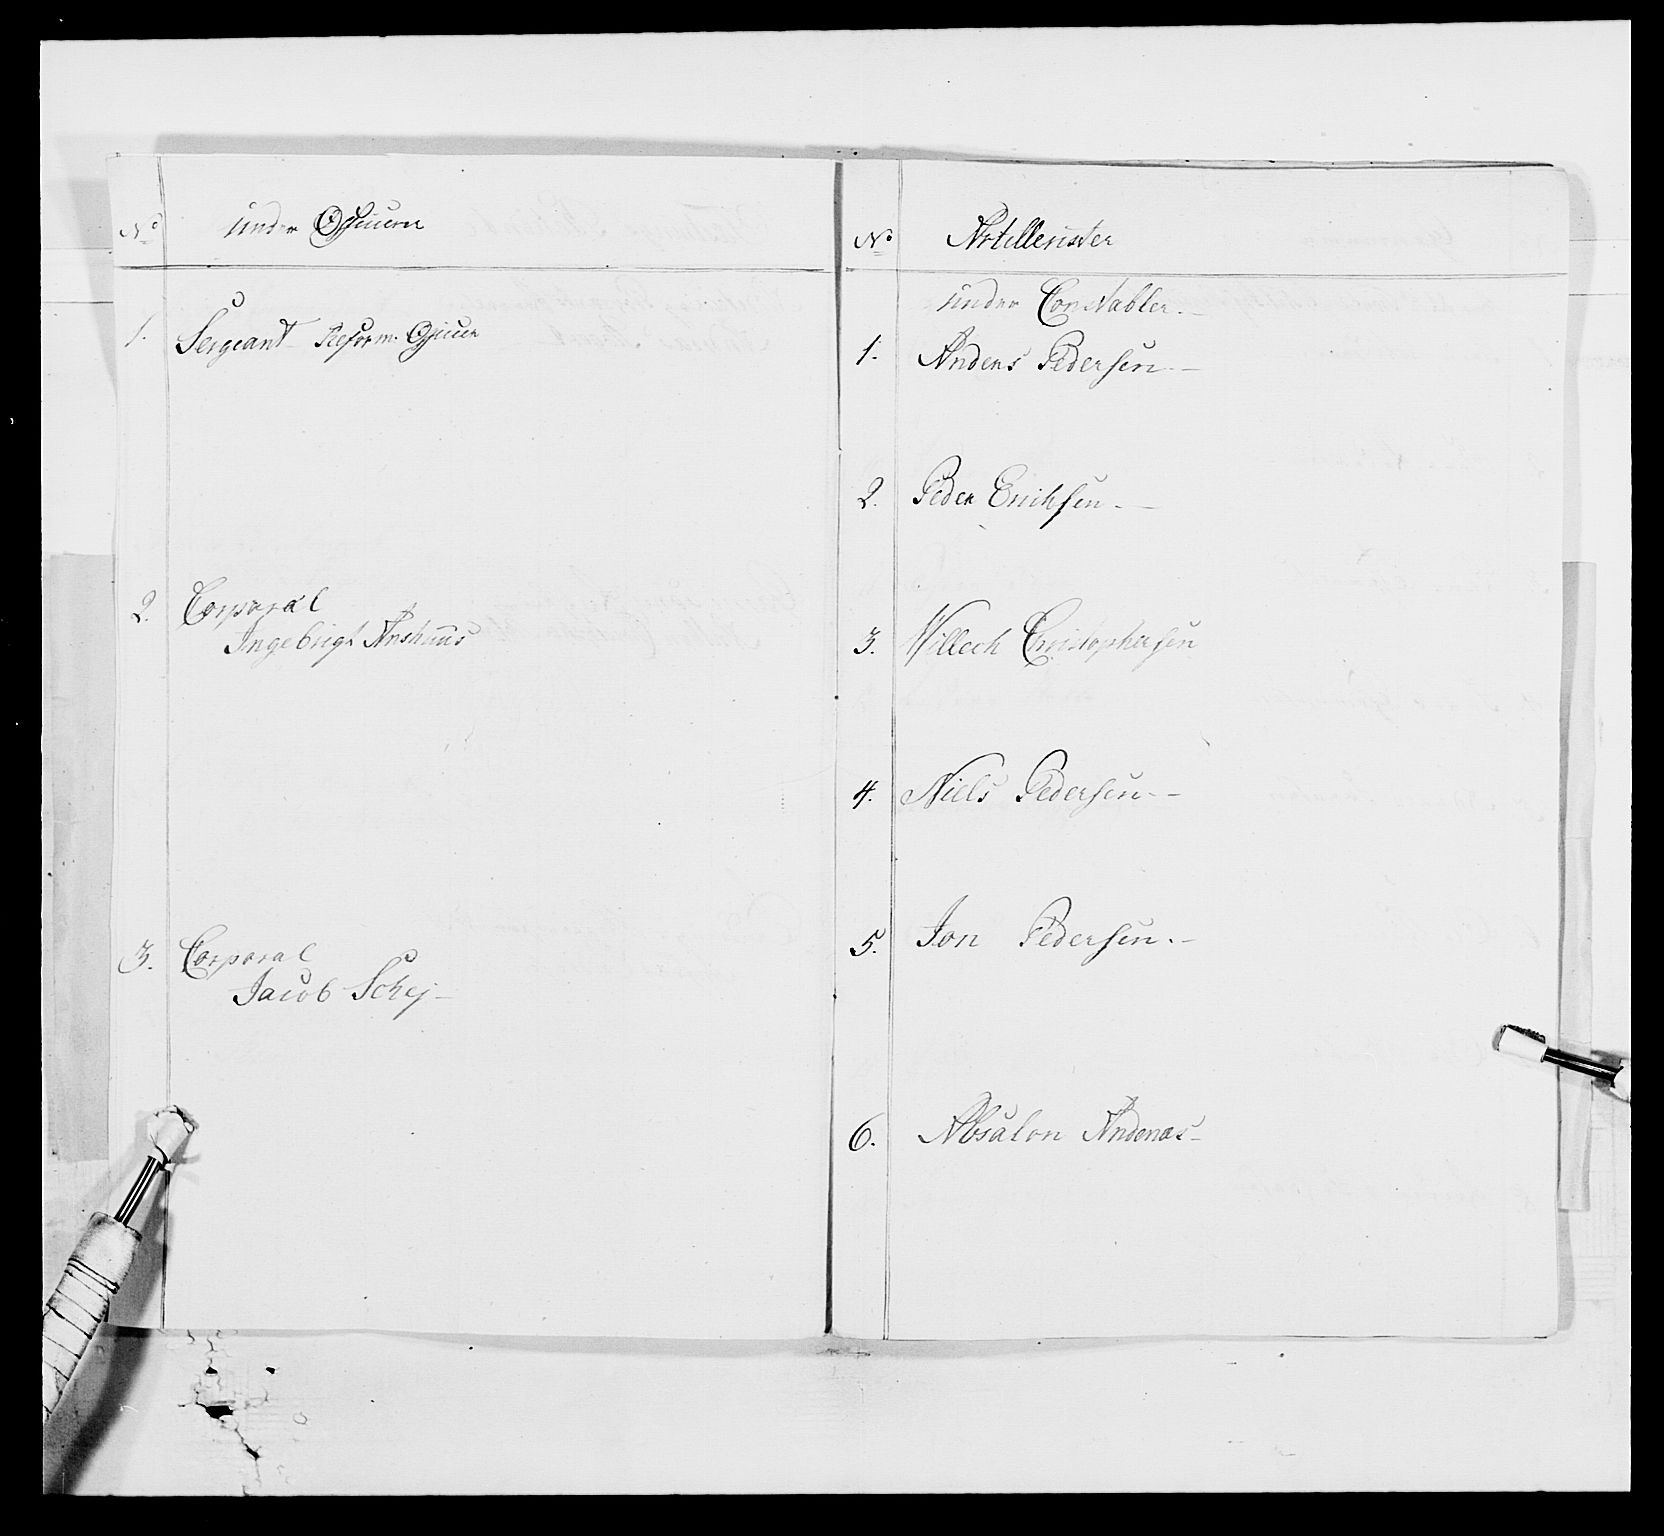 No
under Officerer
1. Sergeant Reform. Officer
2. Corporal
Ingebrigt Anshuus
3. Corporal
Jacob Schej –
No
Artillerister
under Constabler. –
1. Anders Pedersen. –
2. Peder Erichsen. –
3. Willech Christophersen
4. Niels Pedersen. –
5. Jon Pedersen. –
6. Absalon Andenæs –